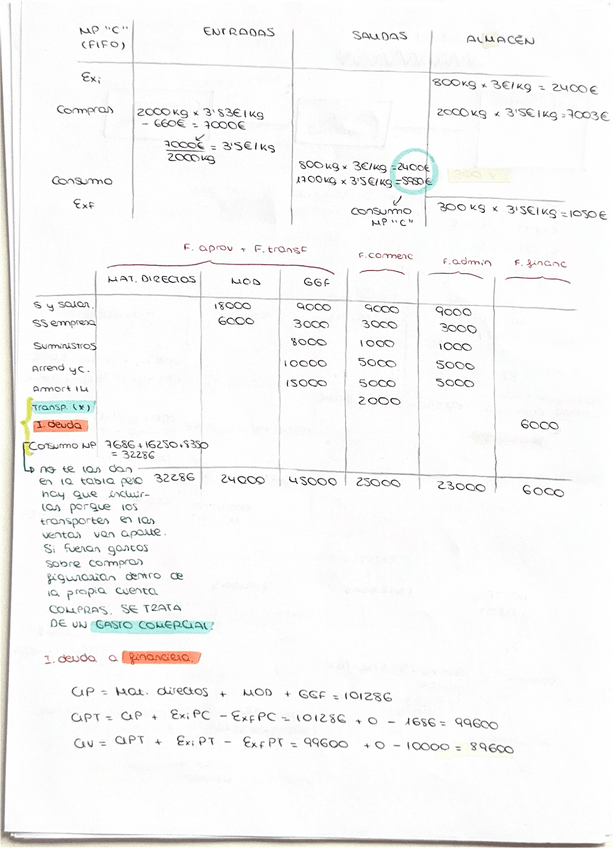 MP "C" (FIFO) ENTRADAS SALIDAS ALMACÉN
Exi 800kg x 3€/kg = 2400€
Compras 2000kg x 3'83€/kg 2000kg x 3'5€/kg = 7003€
- 660€ = 7000€
7000€ = 3'5€/kg
2000kg
800kg x 3€/kg = 2400€
Consumo 1700kg x 3'5€/kg = 5950€
Exf 300kg x 3'5€/kg = 1050€
consumo
MP "C"
F. aprov + F. transf F. comerc F. admin F. financ
MAT. DIRECTOS MOD GGF
S y salar. 18000 9000 9000 9000
SS empresa 6000 3000 3000 3000
Suministros 8000 1000 1000
Arrend y c. 10000 5000 5000
Amort IM 15000 5000 5000
Transp. (*) 2000
I. deuda 6000
Consumo MP 7686 + 16250 + 8350
= 32286
32286 24000 45000 25000 23000 6000
no te las dan
en la tabla pero
hay que incluir-
las porque los
transportes en las
ventas van aparte.
Si fueran gastos
sobre compras
figurarían dentro de
la propia cuenta
COMPRAS. SE TRATA
DE UN GASTO COMERCIAL.
I. deuda a financiera.
CIP = Mat. directos + MOD + GGF = 101286
CIPT = CIP + ExiPC - ExfPC = 101286 + 0 - 1686 = 99600
CIV = CIPT + ExiPT - ExfPT = 99600 + 0 - 10000 = 89600